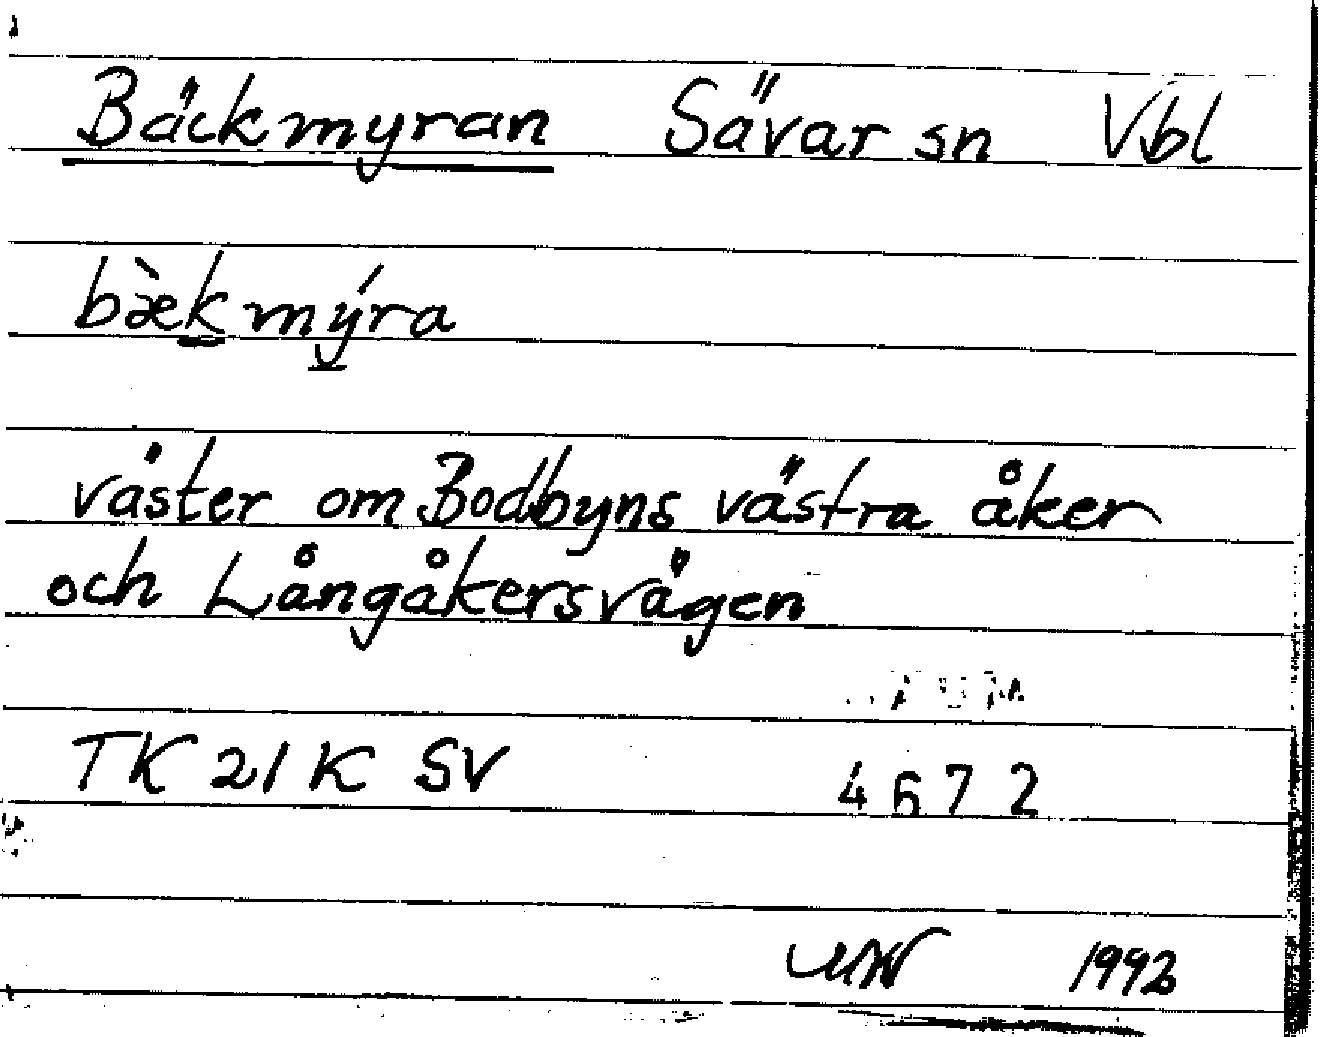 Bäckmyran Sävar sn Vbl
bæ̀kmýra
väster om Bodbyns västra åker
och Långåkersvägen
TK 21 K SV 4672
1992